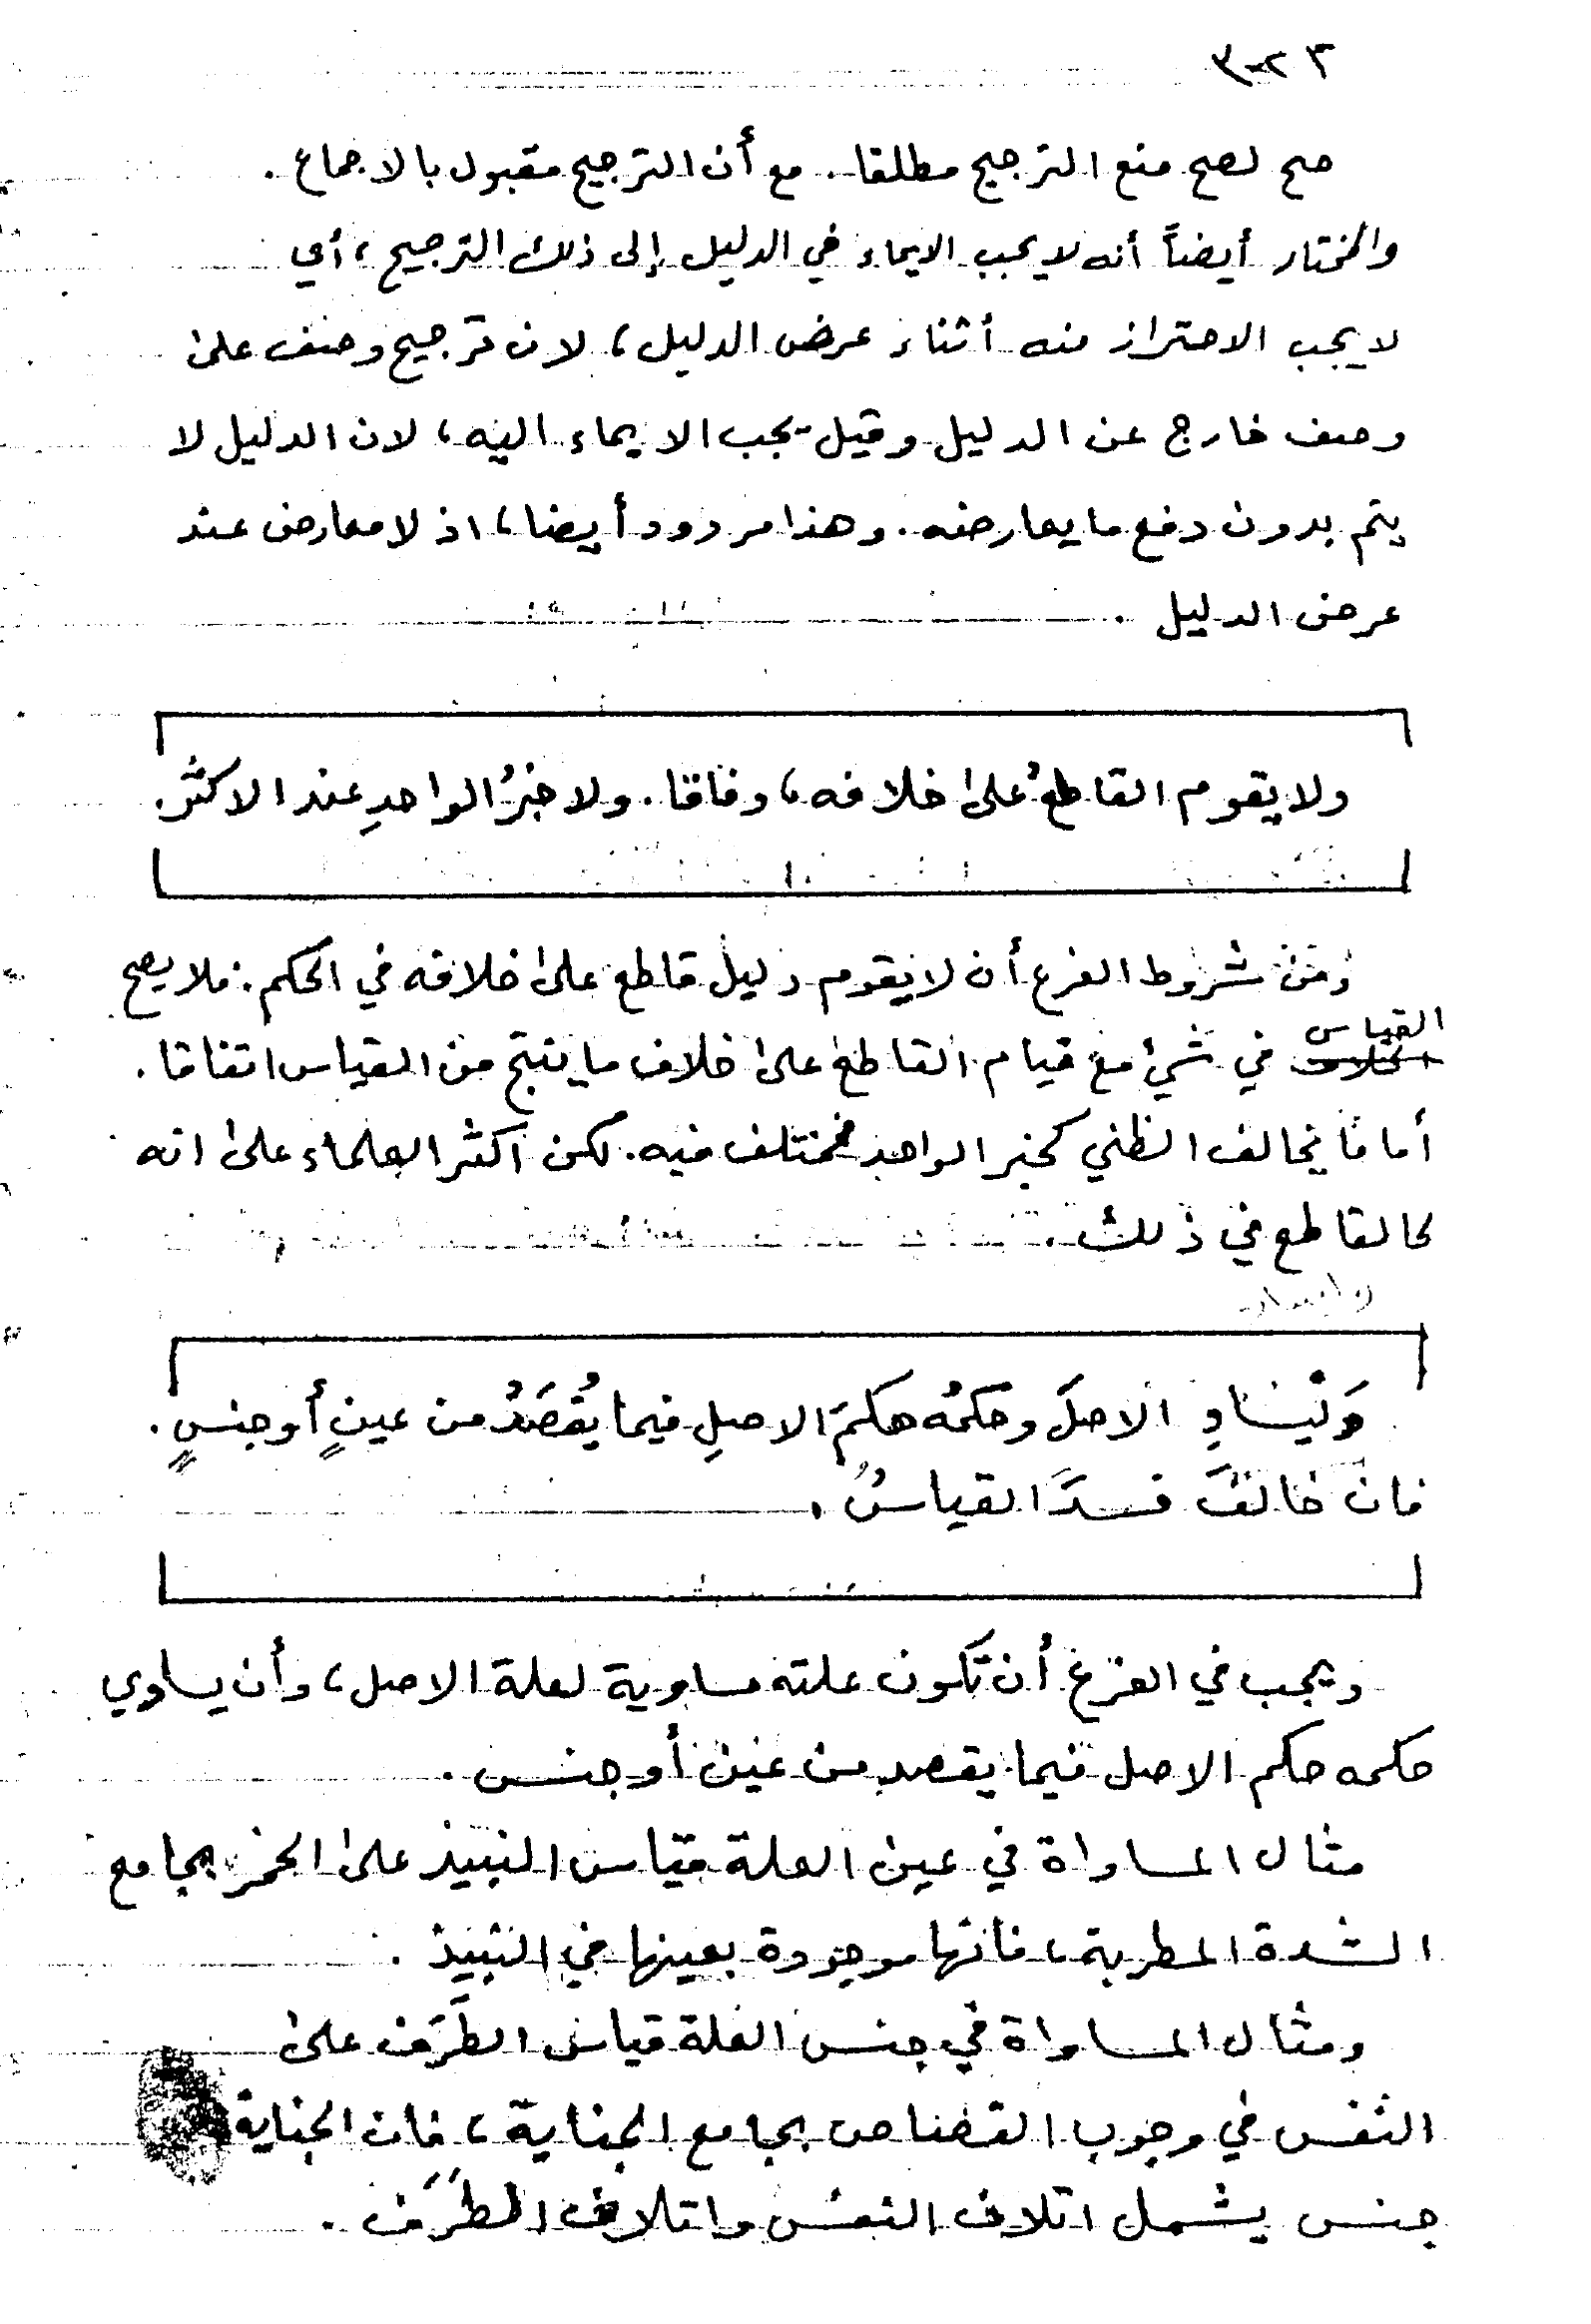 صح لصح منع الترجيح مطلقا . مع أن الترجيح مقبول بالاجماع .
والمختار أيضاً أنه لا يجب الايماء في الدليل إلى ذلك الترجيح ، أي
لا يجب الاحتراز منه أثناء عرض الدليل ، لان ترجيح وصف على
وصف خارج عن الدليل وقيل يجب الايماء اليه ، لان الدليل لا
يتم بدون دفع ما يعارضه . وهذا مردود أيضا ، اذ لا معارض عند
عرض الدليل .
ولا يقوم القاطعُ على خلافه ، وفاقا . ولا خبرُ الواحدِ عند الاكثر .
ومن شروط الفرع أن لا يقوم دليل قاطع على خلافه في الحكم : فلا يصح
القياس
في شيء مع قيام القاطع على خلاف ما ينتج من القياس اتفاقا .
أما ما يخالف الظني كخبر الواحد فمختلف فيه . لكن اكثر العلماء على انه
كالقاطع في ذلك .
وَلْيُساوِ الاصلَ وحكمُه حكمَ الاصلِ فيما يُقْصَدُ من عينٍ أو جنسٍ .
فان خالفَ فسدَ القياسُ .
ويجب في الفرع أن تكون علته مساوية لعلة الاصل ، وأن يساوي
حكمه حكم الاصل فيما يقصد من عين أو جنس .
مثال المساواة في عين العلة قياس النبيذ على الخمر بجامع
الشدة المطربة ، فانها موجودة بعينها في النبيذ .
ومثال المساواة في جنس العلة قياس الطَّرَف على
النفس في وجوب القصاص بجامع الجناية ، فان الجناية
جنس يشمل اتلاف النفس واتلاف الطَّرَف .